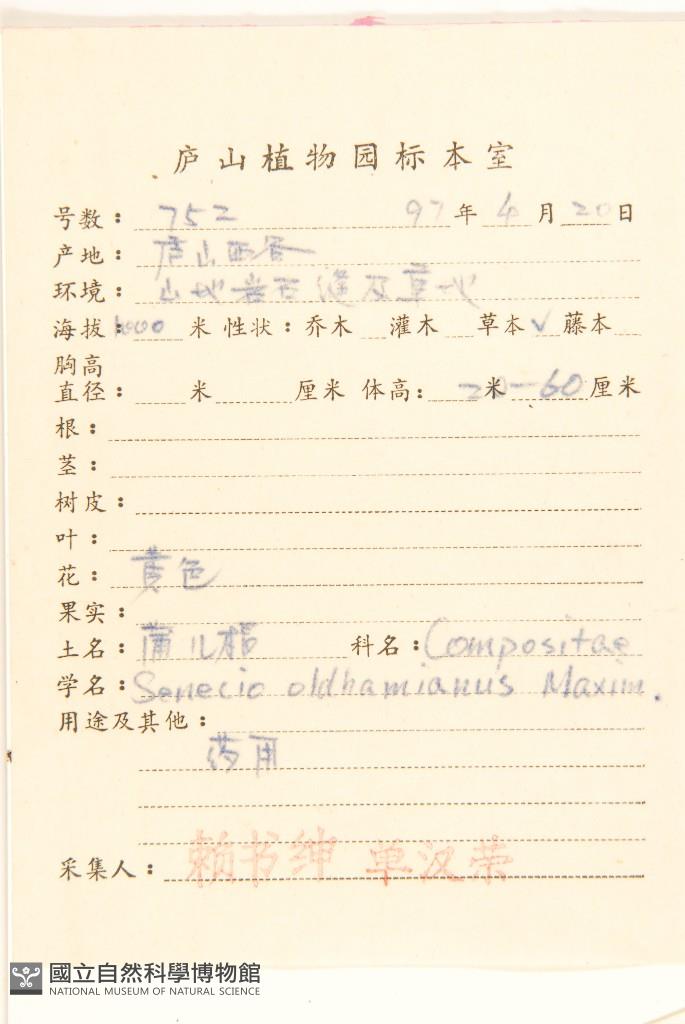 庐山植物园标本室
号数：752 97年4月20日
产地：庐山西谷
环境：山地岩石缝及草地
海拔：1000米 性状：乔木 灌木 草本√ 藤本
胸高
直径： 米 厘米 体高： 20米—60厘米
根：
茎：
树皮：
叶：
花：黄色
果实：
土名：蒲儿根 科名：Compositae
学名：Senecio oldhamianus Maxim.
用途及其他：
药用
采集人：赖书绅 单汉荣
國立自然科學博物館
NATIONAL MUSEUM OF NATURAL SCIENCE